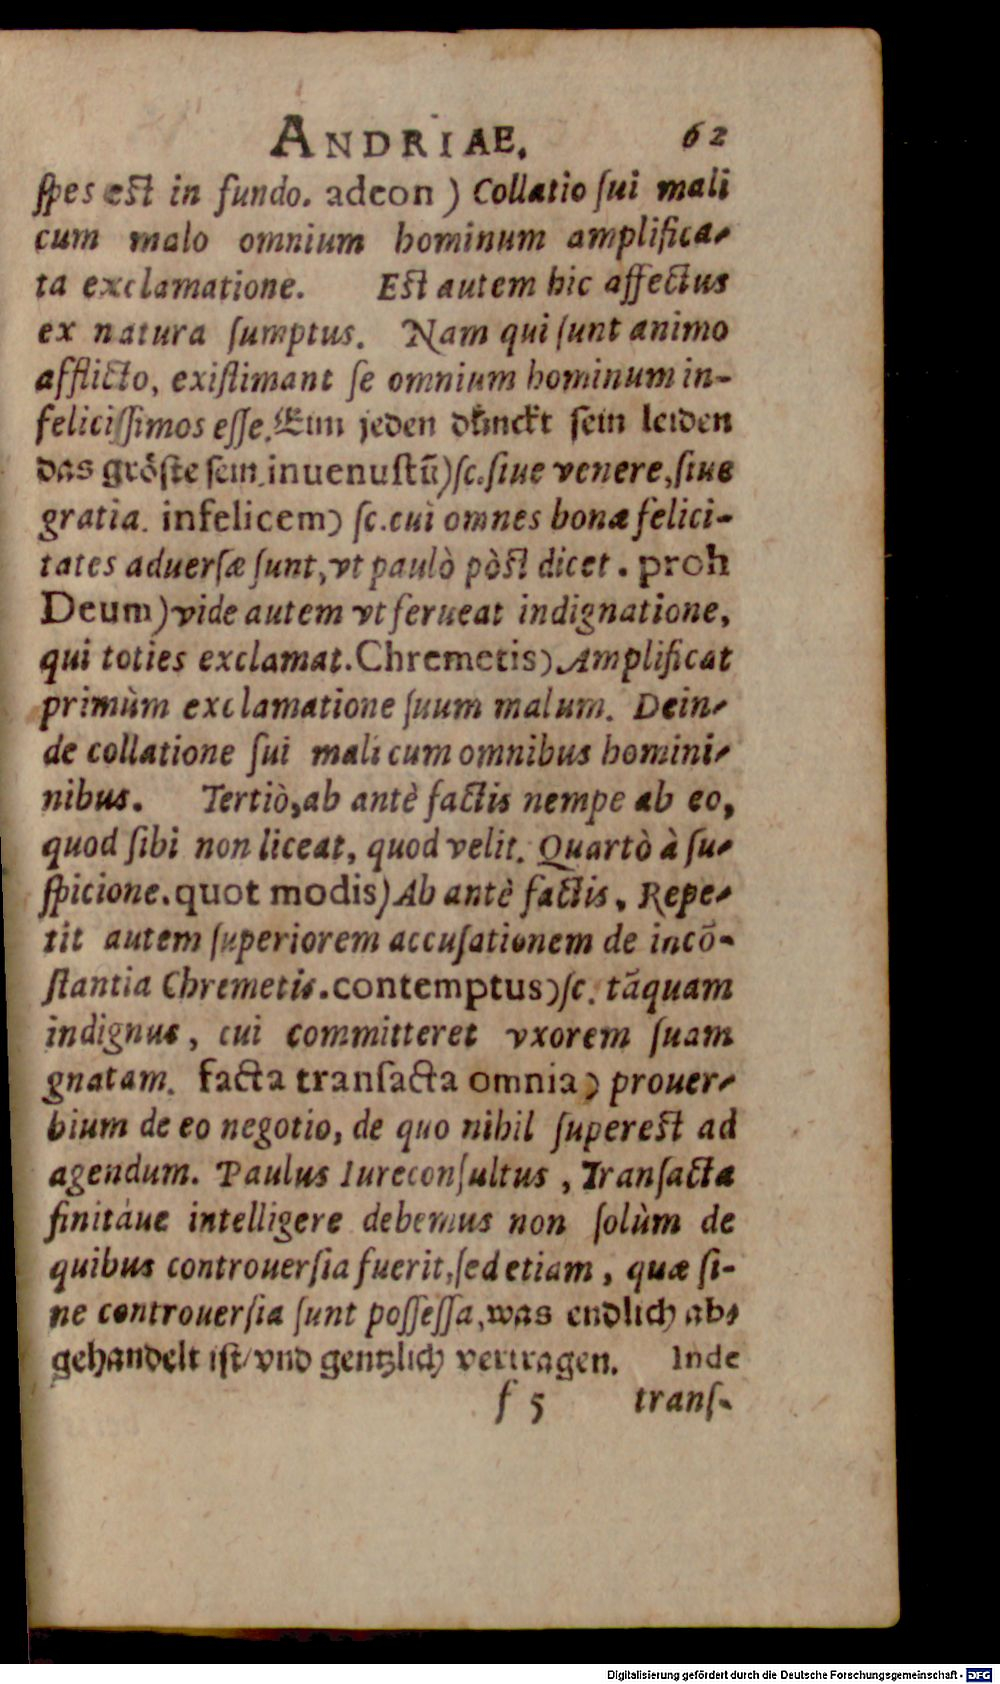 ANDRIAE. 62
ſpes est in fundo. adeon ) Collatio ſui mali
cum malo omnium hominum amplifica-
ta exclamatione. Est autem hic affectus
ex natura ſumptus. Nam qui ſunt animo
afflicto, exiſtimant ſe omnium hominum in-
feliciſſimos eſſe. Eim jeden dünckt ſein leiden
das gröſte ſein. inuenuſtū) ſc. ſiue venere, ſiue
gratia. infelicem) ſc. cui omnes bonæ felici-
tates aduerſæ ſunt, vt paulò pòſt dicet. proh
Deum) vide autem vt ferueat indignatione,
qui toties exclamat. Chremetis) Amplificat
primùm exclamatione ſuum malum. Dein-
de collatione ſui mali cum omnibus homini-
nibus. Tertiò, ab antè factis nempe ab eo,
quod ſibi non liceat, quod velit. Quartò à ſu-
ſpicione. quot modis) Ab antè factis. Repe-
tit autem ſuperiorem accuſationem de incō-
ſtantia Chremetis. contemptus) ſc. tāquam
indignus, cui committeret vxorem ſuam
gnatam. facta tranſacta omnia) prouer-
bium de eo negotio, de quo nihil ſupereſt ad
agendum. Paulus Iureconſultus, Tranſacta
finitáue intelligere debemus non ſolùm de
quibus controuerſia fuerit, ſed etiam, quæ ſi-
ne controuerſia ſunt poſſeſſa, was endlich ab-
gehandelt iſt/ vnd gentzlich vertragen. Inde
f 5 tranſ-
Digitalisierung gefördert durch die Deutsche Forschungsgemeinschaft - DFG